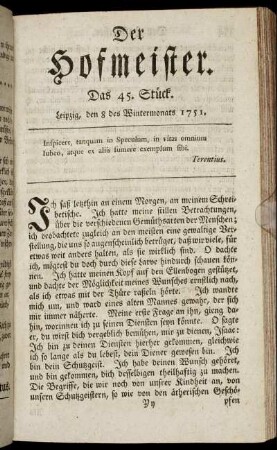 Der
Hofmeister.
Das 45. Stück.
Leipzig, den 8 des Wintermonats 1751.
Inspicere, tanquam in Speculum, in vitas omnium
Iubeo, atque ex aliis sumere exemplum sibi.
Terentius.
Ich saß letzthin an einem Morgen, an meinem Schrei-
betische. Ich hatte meine stillen Betrachtungen,
über die verschiedenen Gemüthsarten der Menschen;
ich beobachtete zugleich an den meisten eine gewaltige Ver-
stellung, die uns so augenscheinlich betrüget, daß wir viele, für
etwas weit anders halten, als sie wirklich sind. O dachte
ich, möchtest du doch durch diese larve hindurch schauen kön-
nen. Ich hatte meinen Kopf auf den Ellenbogen gestützet,
und dachte der Möglichkeit meines Wunsches ernstlich nach,
als ich etwas mit der Thüre rasseln hörte. Ich wandte
mich um, und ward eines alten Mannes gewahr, der sich
mir immer näherte. Meine erste Frage an ihn, gieng da-
hin, worinnen ich zu seinen Diensten seyn könnte. O sagte
er, du wirst dich vergeblich bemühen, mir zu dienen, Isaac:
Ich bin zu deinen Diensten hierher gekommen, gleichwie
ich so lange als du lebest, dein Diener gewesen bin. Ich
bin dein Schutzgeist. Ich habe deinen Wunsch gehöret,
und bin gekommen, dich desselbigen theilhaftig zu machen.
Die Begriffe, die wir noch von unser Kindheit an, von
unsern Schutzgeistern, so wie von den ätherischen Geschö-
Yy pfen